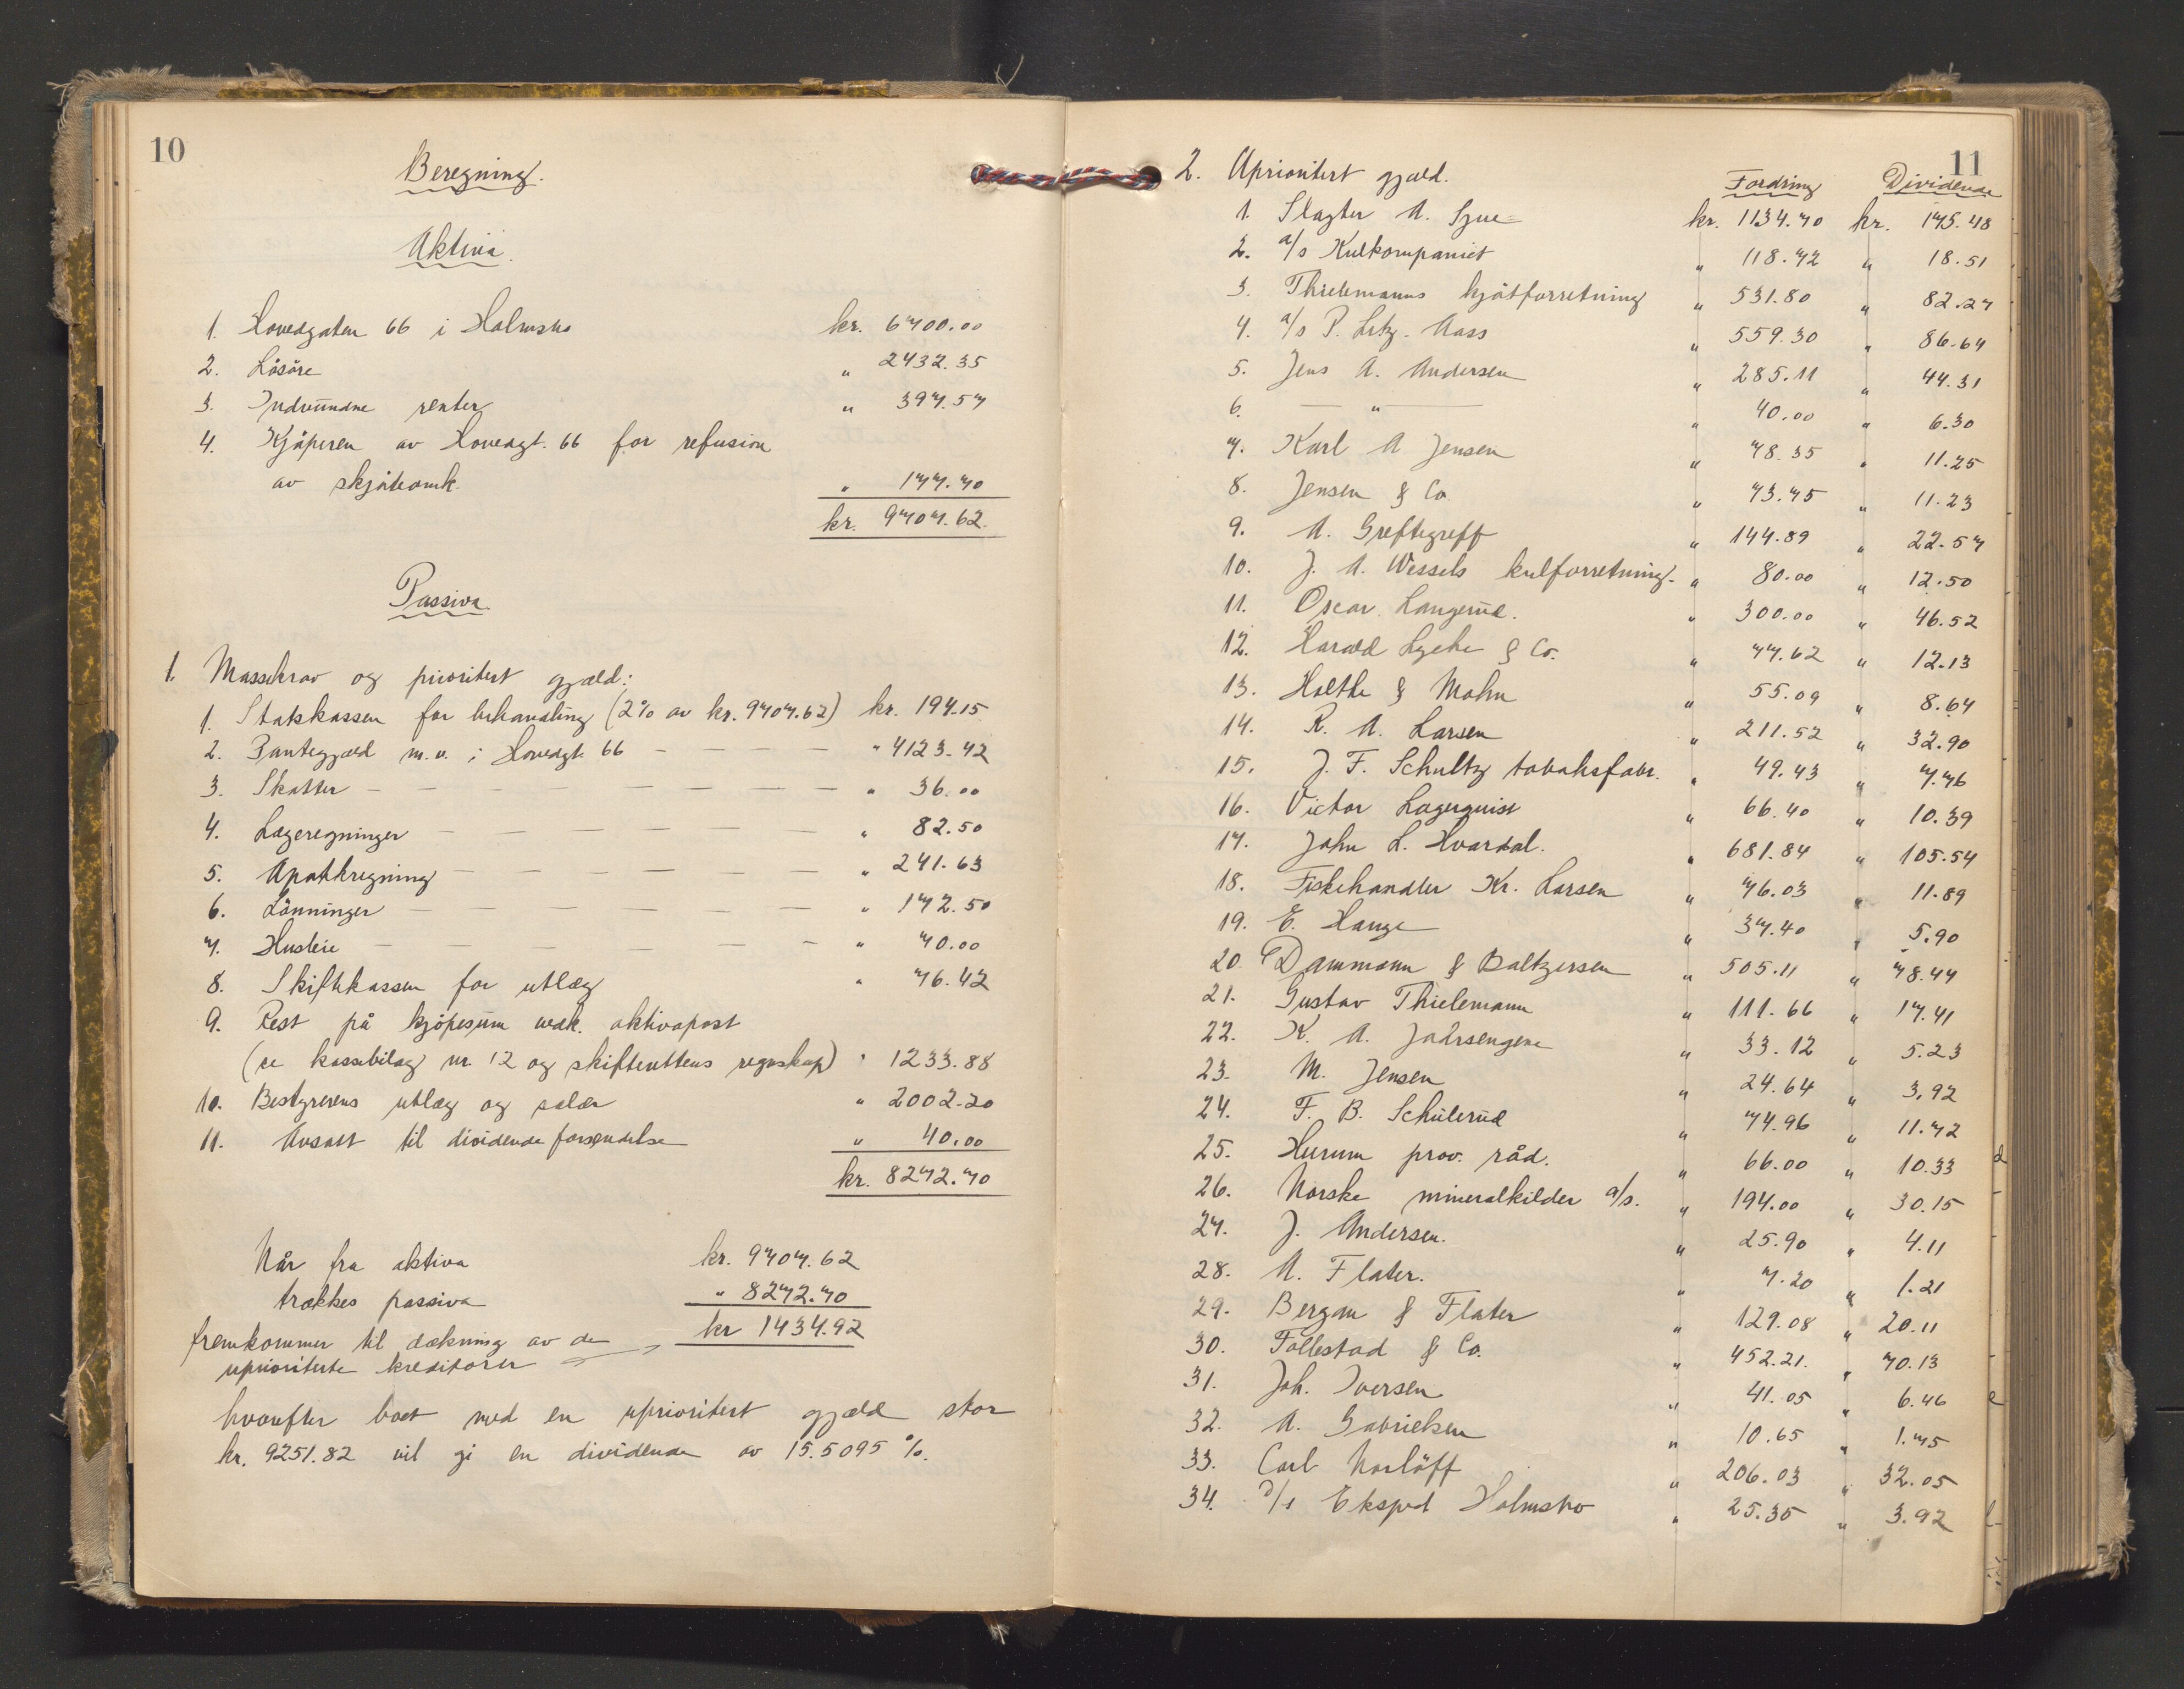 10
Beregning.
Aktiva.
1. Hovedgaten 66 i Holmsbo kr. 6700.00
2. Løsøre " 2432.35
3. Indvundne renter " 397.57
4. Kjøperen av Hovedgt. 66 for refusion
av skjøteomk. " 177.70
kr. 9707.62.
Passiva.
1. Massekrav og prioritert gjæld:
1. Statskassen for behandling (2% av kr. 9707.62) kr. 194.15
2. Pantegjæld m.v. i Hovedgt. 66 — — — — " 4123.42
3. Skatter — — — — — — — — " 36.00
4. Lægeregninger — — — — — — " 82.50
5. Apotekregning — — — — — — " 241.63
6. Lønninger — — — — — — " 172.50
7. Husleie — — — — — — " 70.00
8. Skiftekassen for utlæg " 76.42
9. Rest på kjøpesum vedk. aktivapost
(se kassebilag nr. 12 og skifterettens regnskap) " 1233.88
10. Bestyrerens utlæg og salær " 2002.20
11. Avsatt til dividende forsendelse " 40.00
kr. 8272.70
Når fra aktiva kr. 9707.62
trækkes passiva " 8272.70
fremkommer til dækning av de kr 1434.92
uprioriterte kreditorer
hvorefter boet med en uprioritert gjæld stor
kr. 9251.82 vil gi en dividende av 15.5095 %.
11
2. Uprioritert gjæld. Fordring Dividende
1. Slagter A. Sjue kr. 1134.70 kr. 175.48
2. a/s Kulkompaniet " 118.72 " 18.51
3. Thielemanns kjøtforretning " 531.80 " 82.27
4. a/s P. Ltz. Aass " 559.30 " 86.64
5. Jens A. Andersen " 285.11 " 44.31
6. — " — " 40.00 " 6.30
7. Karl A Jensen " 78.35 " 11.25
8. Jensen & Co " 73.75 " 11.23
9. A. Greftegreff " 144.89 " 22.57
10. J. A. Wessels kulforretning. " 80.00 " 12.50
11. Oscar Langerud. " 300.00 " 46.52
12. Harald Lyche & Co. " 77.62 " 12.13
13. Holthe & Mohn " 55.09 " 8.64
14. R. A. Larsen " 211.52 " 32.90
15. J. F. Schultz tobaksfabr. " 49.43 " 7.76
16. Victor Lagerquist " 66.40 " 10.39
17. John L. Hvardal. " 681.84 " 105.54
18. Fiskehandler Kr. Larsen " 76.03 " 11.89
19. E. Hauge " 37.40 " 5.90
20. Dammann & Baltzersen " 505.11 " 78.44
21. Gustav Thielemann " 111.66 " 17.41
22. K. A. " 33.12 " 5.23
23. M. Jensen " 24.64 " 3.92
24. F. B. Schulerud " 74.96 " 11.72
25. Hurum prov. råd. " 66.00 " 10.33
26. Norske mineralkilder a/s. " 194.00 " 30.15
27. J. Andersen. " 25.90 " 4.11
28. A. Flater. " 7.20 " 1.21
29. Bergan & Flater " 129.08 " 20.11
30. Tollestad & Co. " 452.21. " 70.13
31. Joh. Iversen " 41.05 " 6.46
32. A. Gabrielsen " 10.65 " 1.75
33. Carl Norløff " 206.03 " 32.05
34. D/s Ekspd Holmsbo " 25.35 " 3.92